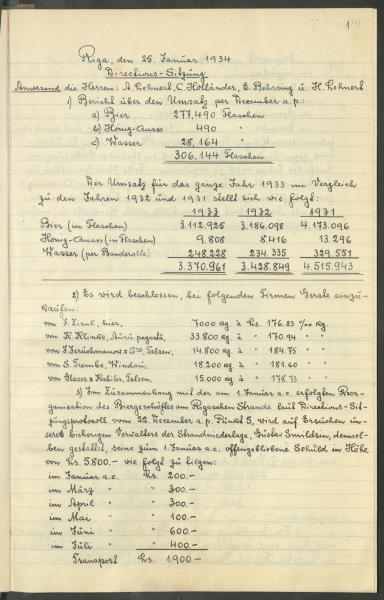 1
Riga, den 25. Januar 1934
Directions-Sitzung
Anwesend die Herren: A. Lehnert, C. Holländer, E. Behrsing u. H. Lehnert
1) Bericht über den Umsatz per December a.p.:
a) Bier 277,490 Flaschen
b) Honig-Quass 490 "
c) Wasser 28,164 "
306.144 Flaschen
Der Umsatz für das ganze Jahr 1933 im Vergleich
zu den Jahren 1932 und 1931 stellt sich wie folgt:
1933 1932 1931
Bier (in Flaschen) 3.112.925 3.186.098 4.173.096
Honig-Quass (in Flaschen) 9.808 8.416 13.296
Wasser (per Banderolle) 248.228 234.335 329.551
3.370.961 3.428.849 4.515.943
2) Es wird beschlossen, bei folgenden Firmen Gerste einzu-
kaufen:
von J. Zirul, hier, 7000 kg. à Ls. 176.83 %₀ kg.
von K. Klinke, Auru pagastā, 33.800 kg. à " 170.94 " "
von Talsen, 14.800 kg. à " 184.75 " "
von S. Trembe, Windau, 18.200 kg. à " 181.60 " "
von Glaser & Talsen, 15.000 kg. à " 178.73 " "
3) Im Zusammenhang mit der am 1. Januar a.c. erfolgten Reor-
ganisation des Biergeschäftes am Rigaschen Strande laut Directions-Sit-
zungsprotocoll vom 22. December a.p. Punkt 5, wird auf Ersuchen un-
seres bisherigen Verwalters der Strandniederlage, Gustav Smildsin, demsel-
ben gestattet, seine zum 1. Januar a.c. offengebliebene Schuld in Höhe
von Ls. 5.800.- wie folgt zu tilgen:
im Januar a.c. Ls. 200.-
im März " " 300.-
im April " " 300.-
im Mai " " 100.-
im Juni " " 600.-
im Juli " " 400.-
Transport Ls. 1.900.-